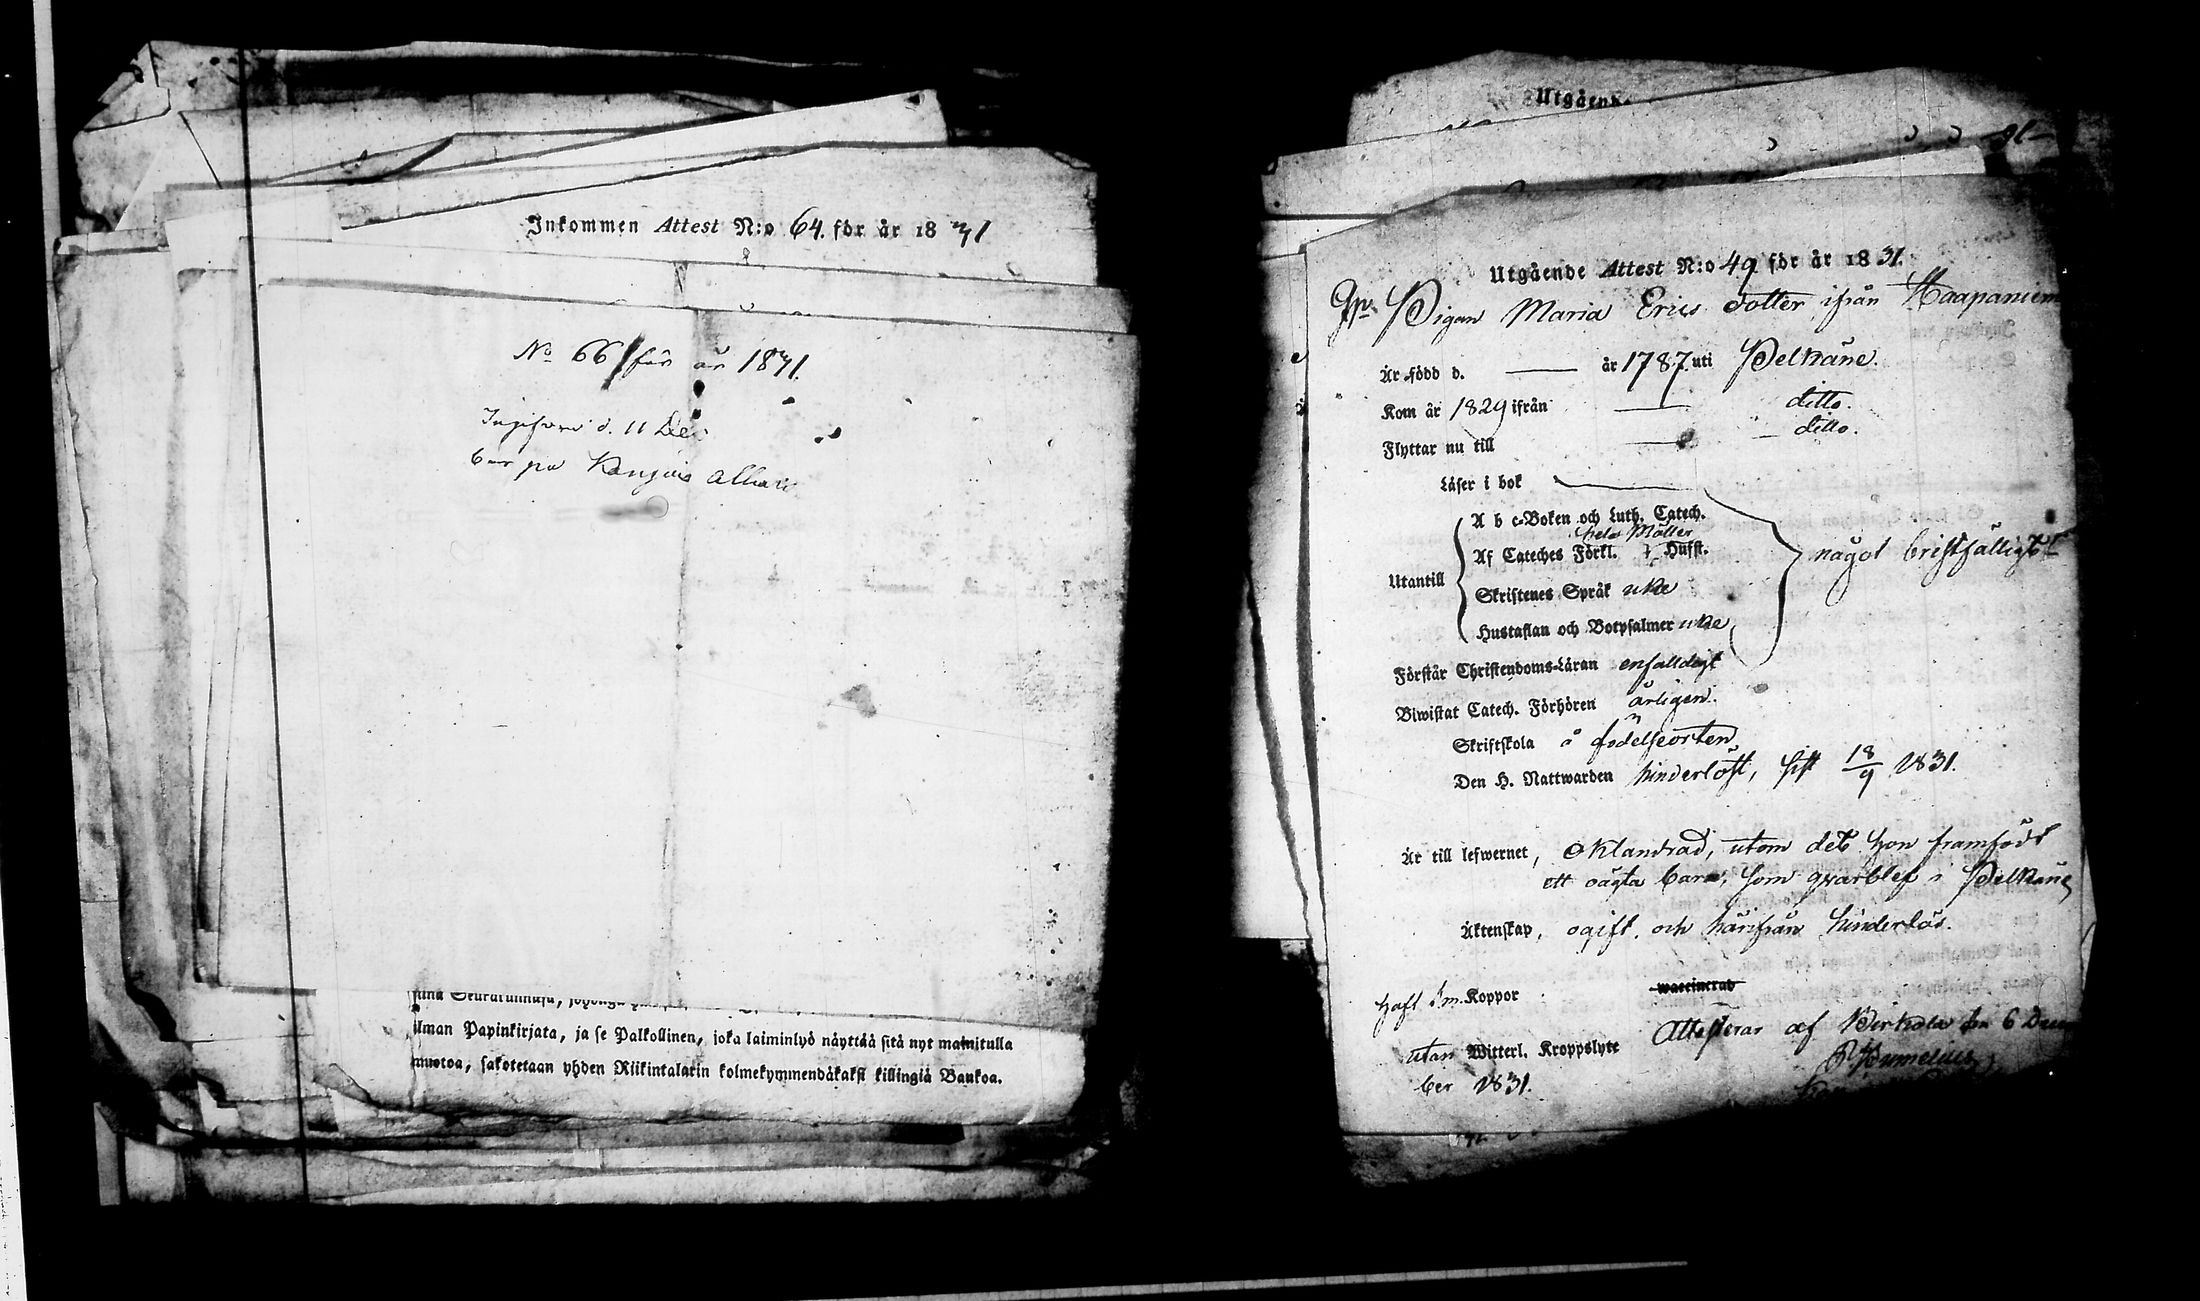 Inkommen Attest N:o 64. för år 1831
No 66 för år 1831.
d. 11 Dec
på
sinä Seurakunnasa,
ilman Papinkirjata, ja se Palkollinen, joka laiminlyö näyttää sitä nyt mainitulla
muotoa, sakotetaan yhden Riikintalarin kolmekymmendäkaksi killingiä Bankoa.
Utgående
Utgående Attest N:o 49 för år 1831.
Pigan Maria Ericsdotter ifrån Haapaniemi
Är född d. — år 1787 uti Pelkäne.
Kom år 1829 ifrån — ditto.
Flyttar nu till — ditto.
Läser i bok
A b c-Boken och Luth. Catech.
hela Möller
Af Cateches Förkl. Husft.
något bristfälligt
Utantill
Skriftenes Språk icke
Hustaflan och Botpsalmer icke
Förstår Christendoms-Läran enfalldigt
Biwistat Catech. Förhören årligen.
Skriftskola å födelseorten
Den H. Nattwarden hinderlöst, sist 18/9 1831.
Är till lefwernet, oklandrad, utom det hon framfödt
ett oägta barn, som qvarblef i Pelkäne,
Äktenskap, ogift. och härifrån hinderlös.
haft Sm. Koppor waccinerad
Attesterar af Birkala den 6 Decem
utan Witterl. Kroppslyte
ber 1831.